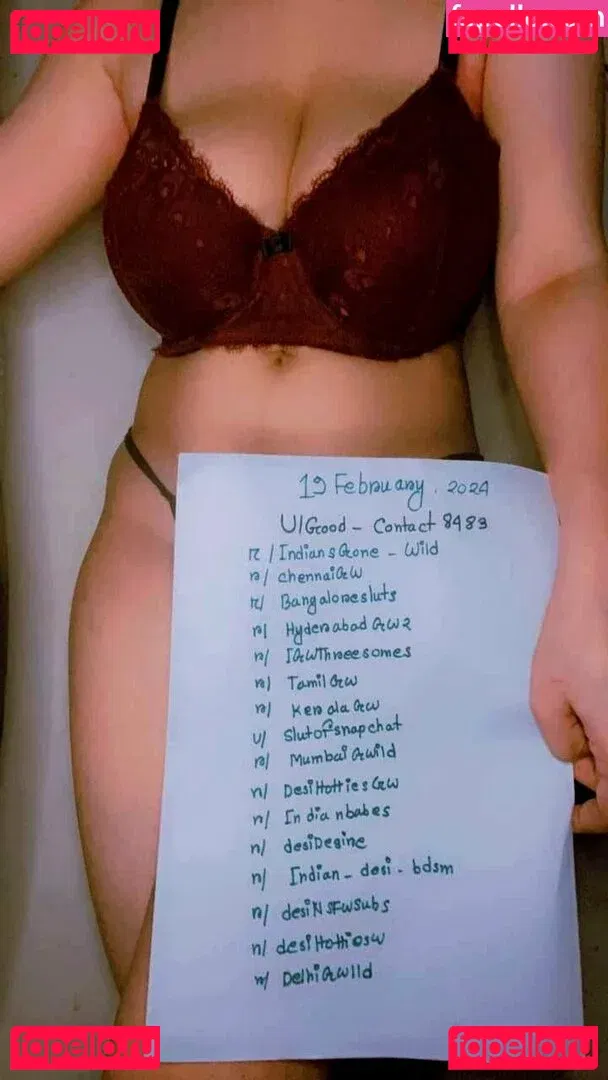 fapello.ru
fapello.ru
19 February, 2024
U/Good - Contact 8483
r/IndiansGone - Wild
r/chennaiGW
r/Bangaloresluts
r/HyderabadGW2
r/IGWThreesomes
r/TamilGW
r/KeralaGW
u/Slutofsnapchat
r/MumbaiGwild
r/DesiHottiesGW
r/Indianbabes
r/desiDesire
r/Indian_desi-bdsm
r/desiNSFWSubs
r/desiHottiosw
r/DelhiGWlld
fapello.ru
fapello.ru